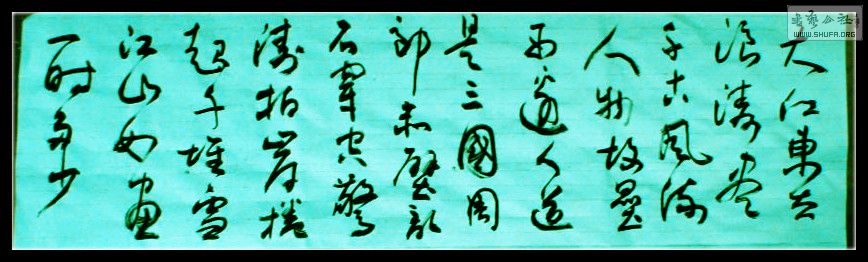 大江東去
浪濤盡
千古風流
人物故壘
西邊人道
是三國周
郎赤壁亂
石穿空驚
濤拍岸捲
起千堆雪
江山如畫
一時多少
書藝公社
WWW.SHUFA.ORG